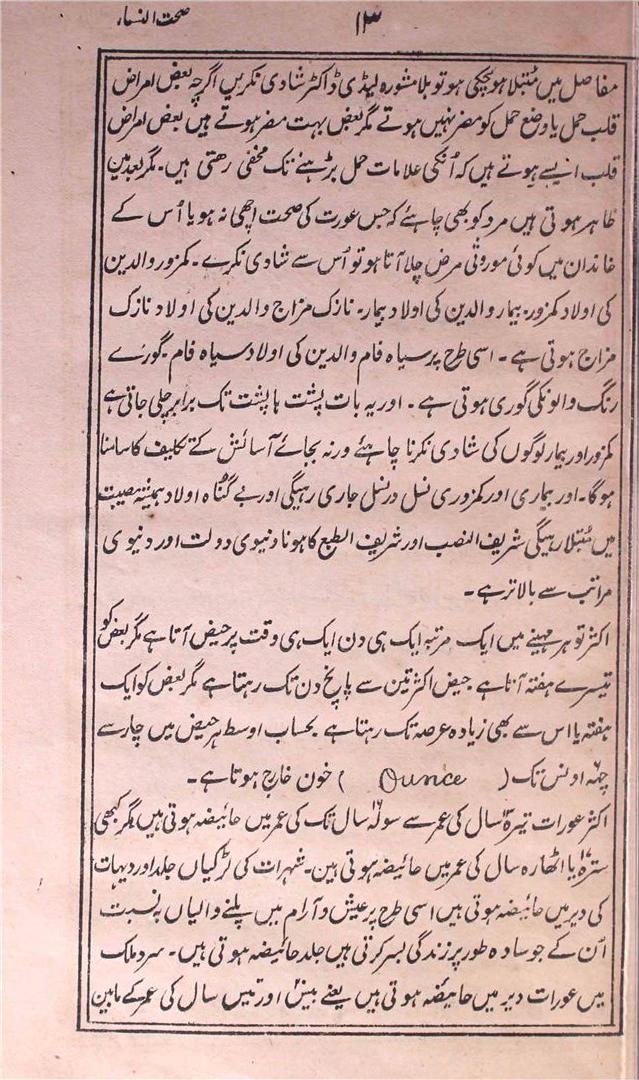 صحت النساء
۱۳
مفاصل میں مُبتلا ہو چکی ہو تو بلا مشورہ لیڈی ڈاکٹر شادی نکریں اگرچہ بعض امراض
قلب حمل یا وضع حمل کو مضر نہیں ہوتے مگر بعض بہت مضر ہوتے ہیں بعض امراض
قلب ایسے ہوتے ہیں کہ اُنکی علامات حمل بڑھنے تک مخفی رهتی ہیں۔ مگر بعد مین
ظاہر ہوتی ہیں مرد کو بھی چاہئے کہ جس عورت کی صحت اچھی نہ ہو یا اُس کے
خاندان میں کوئی موروثی مرض چلا آتا ہو تو اُس سے شادی نکرے۔ کمزور والدین
کی اولاد کمزور۔ بیمار والدین کی اولاد بیمار۔ نازک مزاج والدین کی اولاد نازک
مزاج ہوتی ہے۔ اسی طرح پر سیاہ فام والدین کی اولاد سیاہ فام۔ گورے
رنگ والونکی گوری ہوتی ہے۔ اور یہ بات پشت ہا پشت تک برابر چلی جاتی ہے
کمزور اور بیمار لوگوں کی شادی نکرنا چاہئے ورنہ بجائے آسائش کے تکلیف کا سامنا
ہوگا۔ اور بیماری اور کمزوری نسل در نسل جاری رہیگی اور بے گناہ اولاد ہمیشہ مصیبت
میں مُبتلا رہیگی شریف النصب اور شریف الطبع کا ہونا دنیوی دولت اور دنیوی
مراتب سے بالا تر ہے۔
اکثر تو ہر مہینے میں ایک مرتبہ ایک ہی دن ایک ہی وقت پر حیض آتا ہے مگر بعض کو
تیسرے ہفتہ آتا ہے حیض اکثر تین سے پانچ دن تک رہتا ہے مگر بعض کو ایک
ہفتہ یا اس سے بھی زیادہ عرصہ تک رہتا ہے بحساب اوسط ہر حیض میں چار سے
چھہ اونس تک ( Ounce ) خون خارج ہوتا ہے۔
اکثر عورات تیرہ۱۳ سال کی عمر سے سولہ۱۶ سال تک کی عمر میں حائیضہ ہوتی ہیں مگر کبھی
سترہ۱۷ یا اٹھارہ سال کی عمر میں حائیضہ ہوتی ہین۔ شہرات کی لڑکیاں جلد اور دیہات
کی دیر میں حائیضہ ہوتی ہیں اسی طرح پر عیش و آرام میں پلنے والیاں بہ نسبت
اُن کے جو سادہ طور پر زندگی بسر کرتی ہیں جلد حائیضہ ہوتی ہیں۔ سرد ملک
میں عورات دیر میں حائیضہ ہوتی ہیں یعنے بیس۲۰ اور تیس سال کی عمر کے مابین